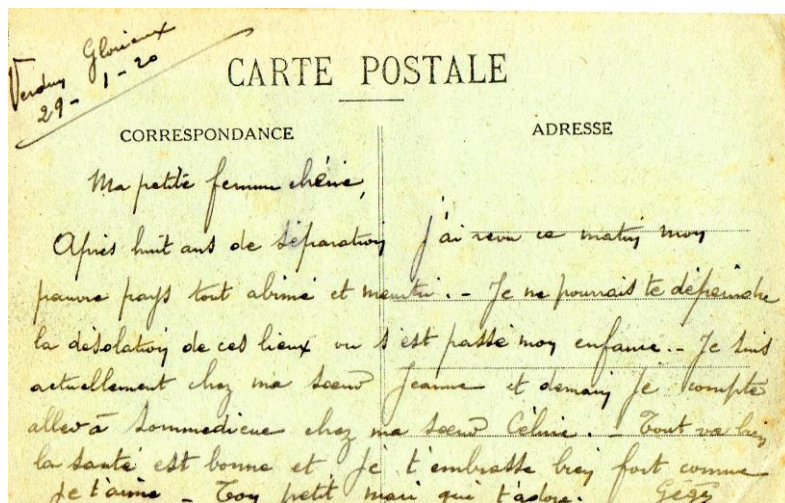 Verdun Glorieux
29-1-20
CARTE POSTALE
CORRESPONDANCE
ADRESSE
Ma petite femme chérie,
Après huit ans de séparation j'ai revu ce matin mon
pauvre pays tout abimé et meurtri. - Je ne pourrais te dépeindre
la désolation de ces lieux ou s'est passé mon enfance. - Je suis
actuellement chez ma sœur Jeanne et demain je compte
aller à Sommedieue chez ma sœur Céline. - Tout va bien
la santé est bonne et je t'embrasse bien fort comme
je t'aime - Ton petit mari qui t'adore. Gégé